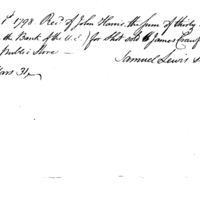 1st 1798 Recd of John Harris the sum of thirty
the Bank of the U.S.) for Shot sold to James Craw
Public Store —
Samuel Lewis
ars 31